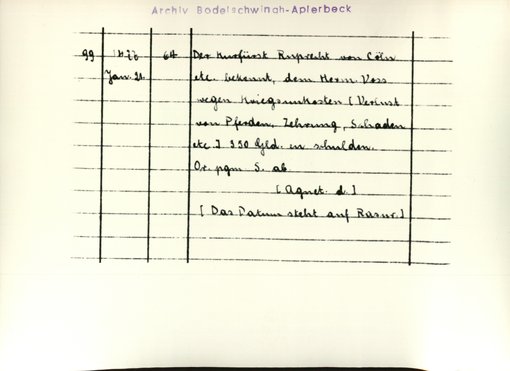 Archiv Bodelschwingh-Aplerbeck
99 Jan. 21. 64 Der Kurfürst Ruprecht von Cöln
etc. bekennt, dem Herm. Voss
wegen Kriegsunkosten [Verlust
von Pferden, Zehrung, Schaden
etc.] 330 Gld. zu schulden.
Or. pgm. S. ab
[Agnet. d.]
[Das Datum steht auf Rasur.]